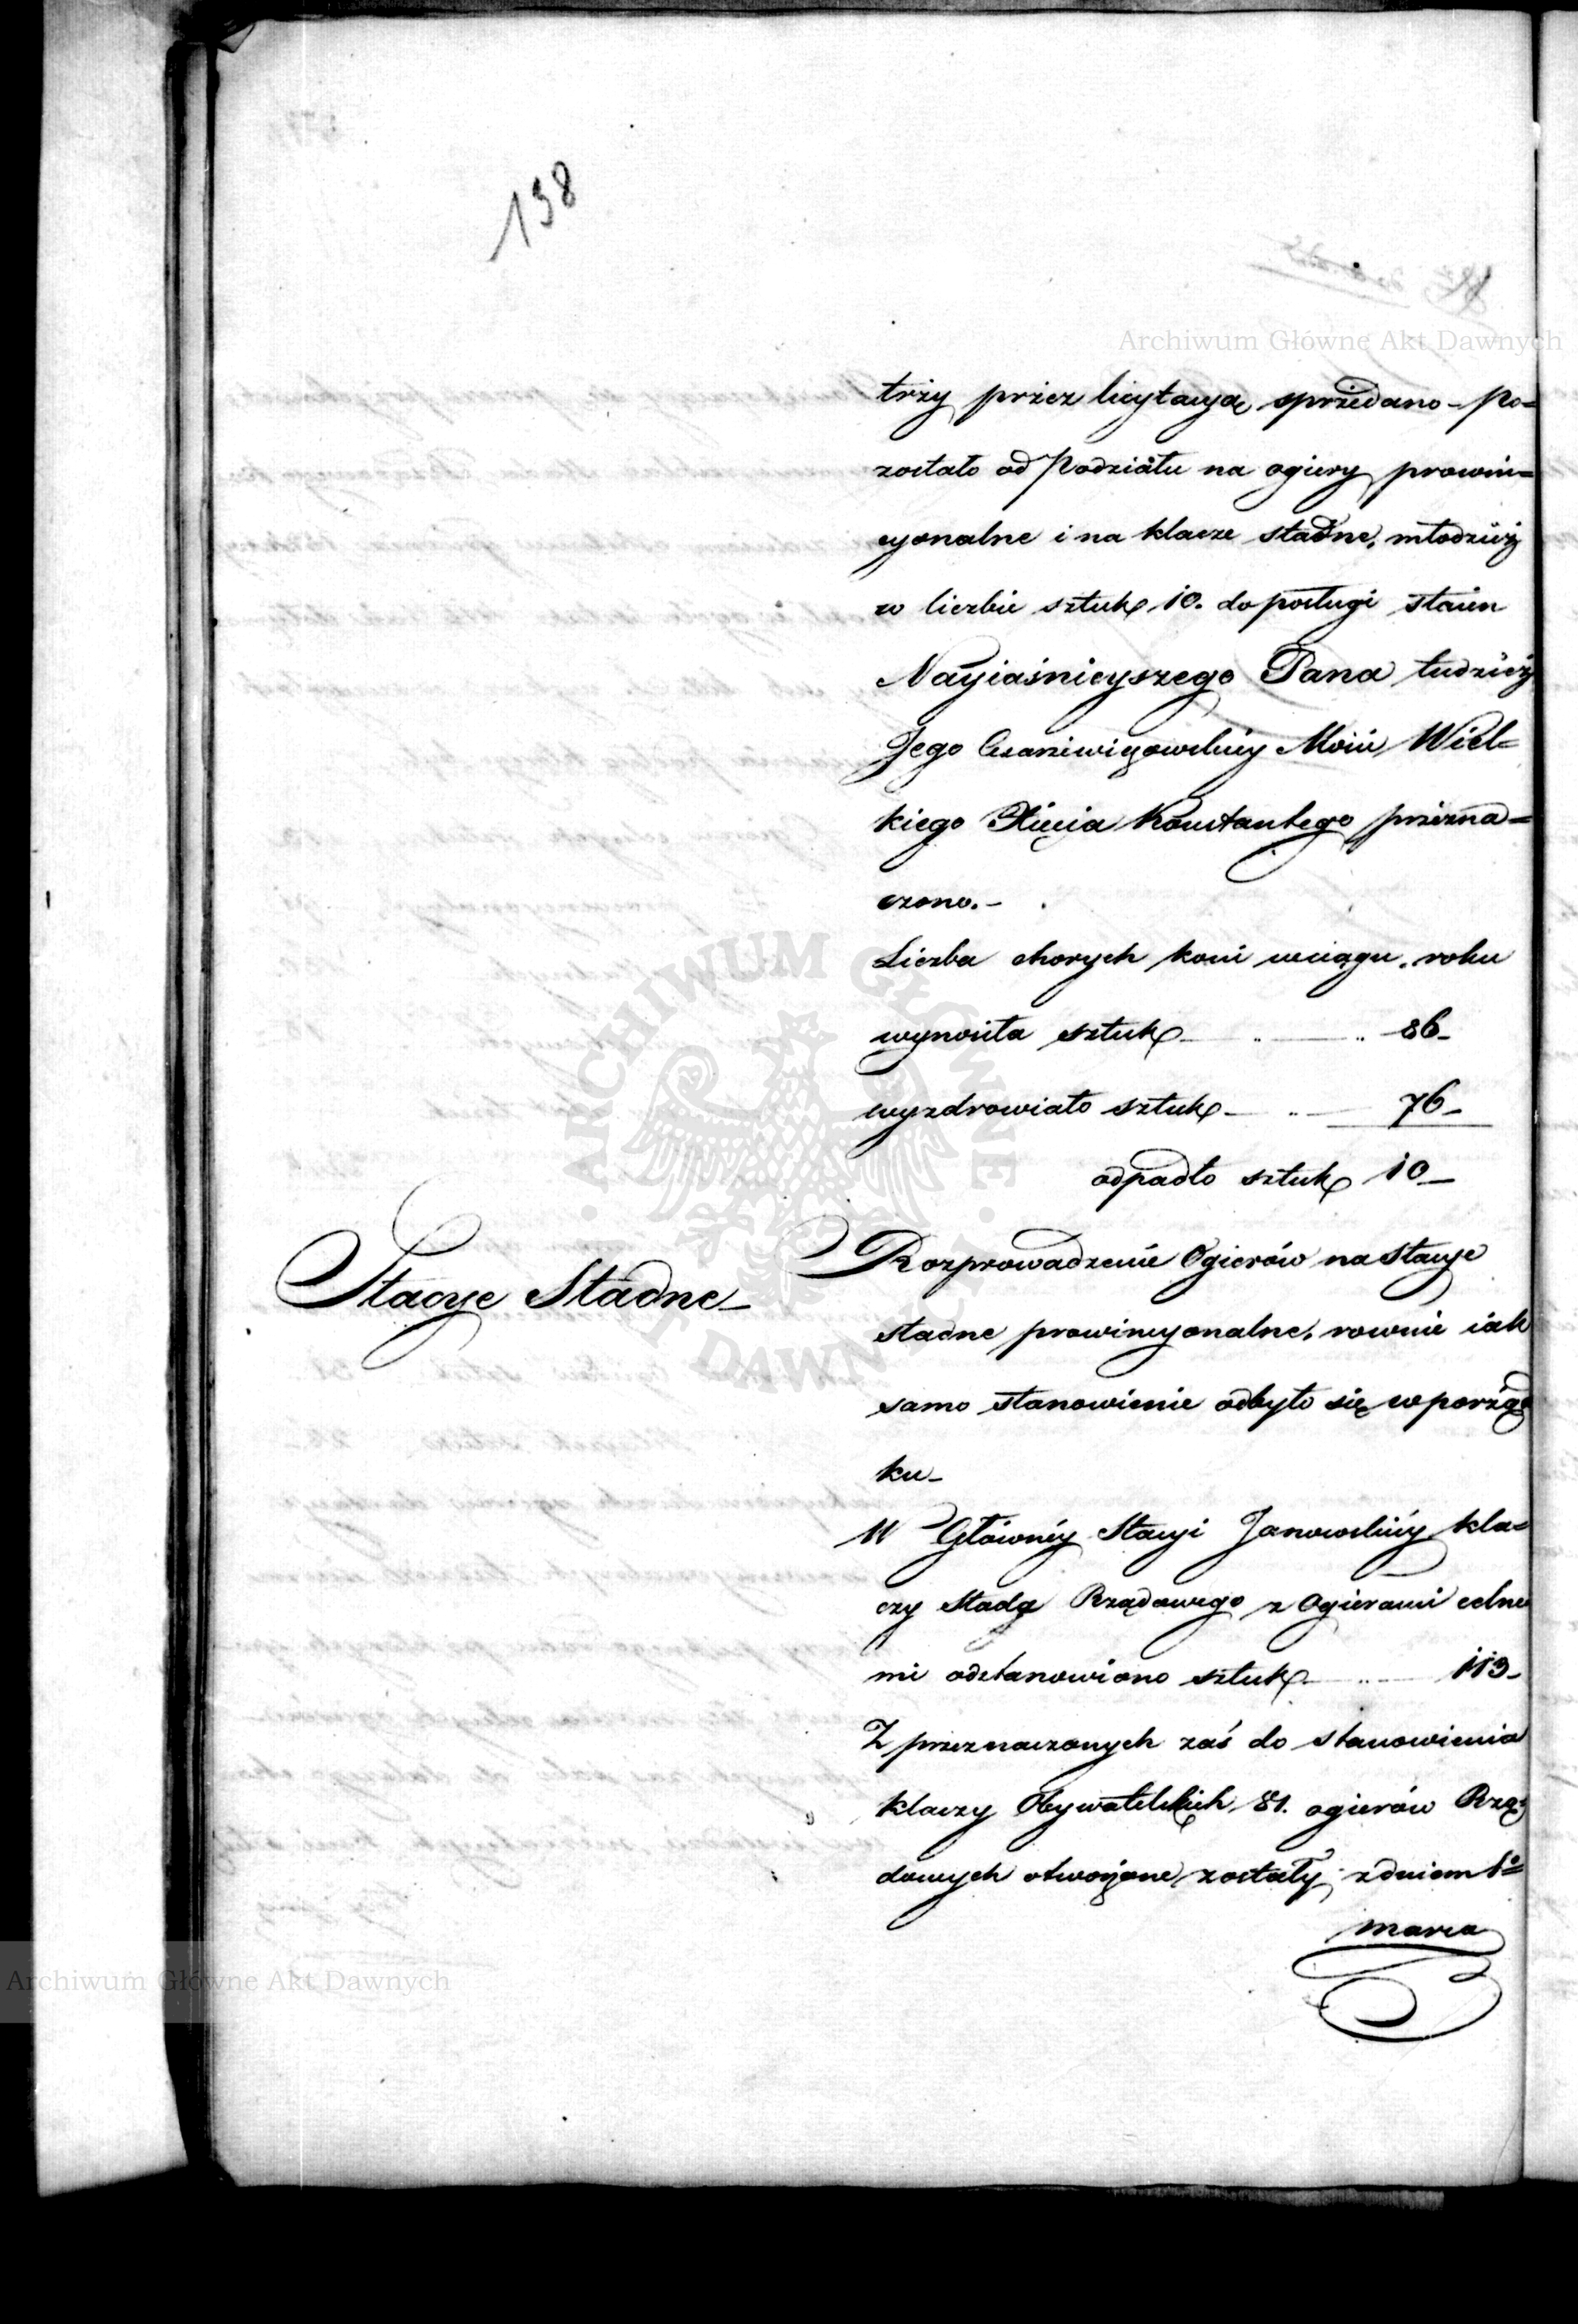 198
Archiwum Główne Akt Dawnych
trzy przez licytacyą sprzedano – po=
zostało od Podziału na ogiery prowin=
cyonalne i na klacze stadne, młodzieży
w liczbie sztuk 10. do posługi staien
Nayiaśnieyszego Pana tudzież
Jego Cesarzewiczowskiey Mości Wiel=
kiego Xięcia Konstantego przezna=
czono. –
Liczba chorych koni w ciągu roku
wynosiła sztuk – .. – .. 86 –
wyzdrowiało sztuk – .. – 76 –
odpadło sztuk 10 –
Stacye Stadne –
Rozprowadzenie Ogierów na Stacye
stadne prowincyonalne, rownie iak
samo stanowienie odbyło się w porząd
ku –
W Główney Stacyi Janowskiéy kla=
czy Stada Rządowego z Ogierami celne
mi odstanowiono sztuk – .. – 113 –
Z przeznaczonych zaś do stanowienia
klaczy Obywatelskich, 81. ogierów Rzą=
dowych otworzone zostały z dniem 1º
marca
ARCHIWUM GŁÓWNE AKT DAWNYCH
Archiwum Główne Akt Dawnych